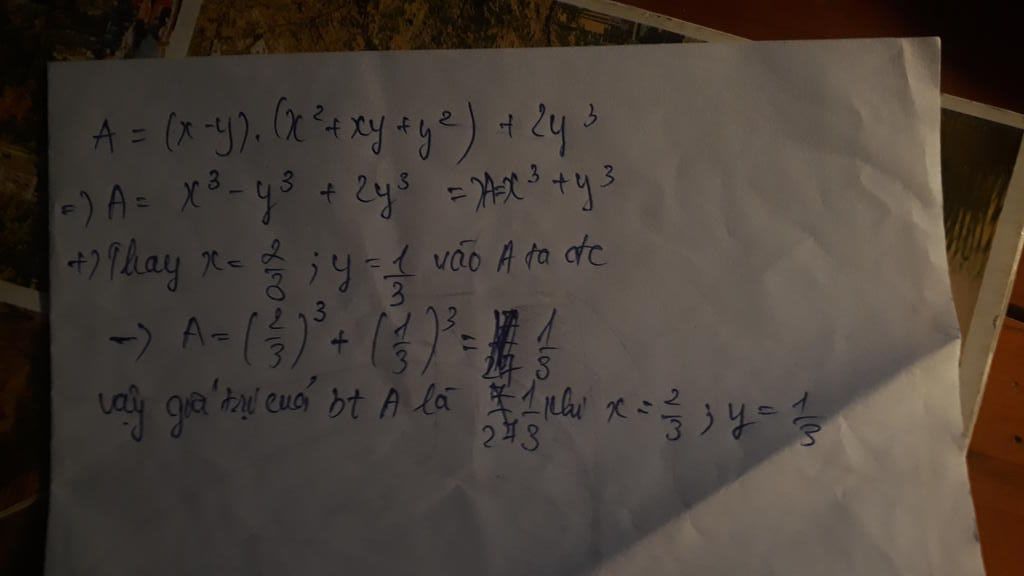 A = (x-y).(x²+xy+y²) + 2y³
=) A = x³ - y³ + 2y³ =) A=x³ + y³
+) Thay x = 2/3 ; y = 1/3 vào A ta đc
-) A = (2/3)³ + (1/3)³ = 1/3
vậy giá trị cuả bt A là 1/3 khi x = 2/3 ; y = 1/3